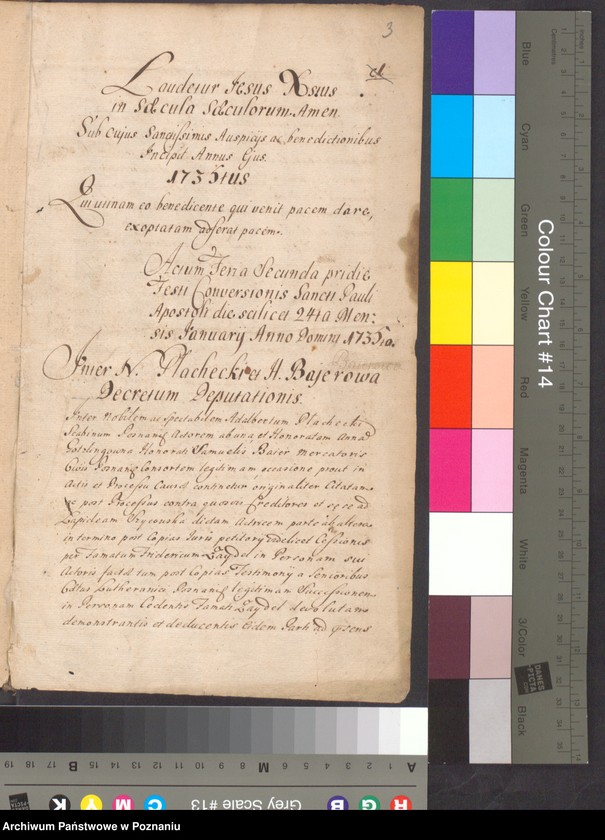 3
Laudetur Jesus Xstus
in Sæcula Sæculorum Amen
Sub Cujus Sanctissimis Auspicijs ac benedictionibus
Incipit Annus Ejus.
Qui utinam eo benedicente qui venit pacem dare,
exoptatam adferat pacem.
Actum Feria Secunda pridie
Festi Conversionis Sancti Pauli
Apostoli die scilicet 24ta Men:
sis January Anno Domini
Inter N. Płachecki et H. Bajerowa
Decretum Deputationis.
Inter Nobilem ac Spectabilem Adalbertum Płachecki
Scabinum Posnaniæ Actorem ab una et Honoratam Annad
Honorati Samuelis Baier Mercatoris
Civis Posnaniæ Consortem legitimam occasione prout in
Actis et Processu Causæ continetur originaliter Citatam
ac post Processus contra quosvis Creditores et
Lapideam dictam Actricem parte ab altera
in termino post Copias Juris petitory videlicet Cessionis
per Famatum Fridericum Zaydel in Personam sui
Actoris factæ tum post Copias Testimony a Senioribus
Cætus Lutheranici Posnaniæ legitimam Successionem
in Personam Cedentis Famati Zaydel devolutam
demonstrantis et deducentis eidem Parti ad
Colour Chart #14
Blue
Cyan
Green
Yellow
Red
Magenta
White
3/Color
Black
Centimetres
Inches
DANES
PICTA
.COM
Grey Scale #13
R G B C M Y K
A 1 2 3 4 5 6 M 8 9 10 11 12 13 14 15 B 17 18 19
Archiwum Państwowe w Poznaniu